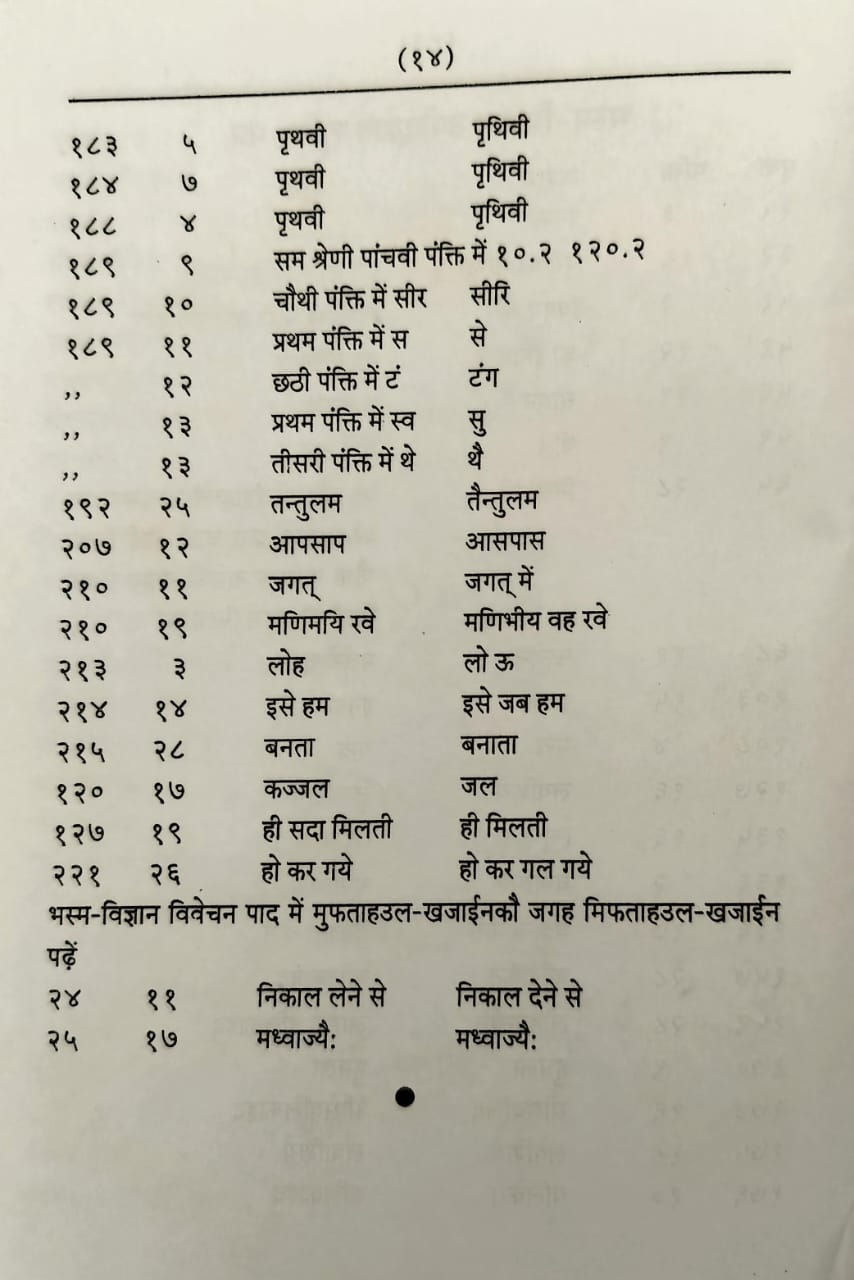 (१४)
१८३ ५ पृथवी पृथिवी
१८४ ७ पृथवी पृथिवी
१८८ ४ पृथवी पृथिवी
१८९ ९ सम श्रेणी पांचवी पंक्ति में १०.२ १२०.२
१८९ १० चौथी पंक्ति में सीर सीरि
१८९ ११ प्रथम पंक्ति में स से
,, १२ छठी पंक्ति में टं टंग
,, १३ प्रथम पंक्ति में स्व सु
,, १३ तीसरी पंक्ति में थे थै
१९२ २५ तन्तुलम तैन्तुलम
२०७ १२ आपसाप आसपास
२१० ११ जगत् जगत् में
२१० १९ मणिमयि रवे मणिभीय वह रवे
२१३ ३ लोह लो ऊ
२१४ १४ इसे हम इसे जब हम
२१५ २८ बनता बनाता
१२० १७ कज्जल जल
१२७ १९ ही सदा मिलती ही मिलती
२२१ २६ हो कर गये हो कर गल गये
भस्म-विज्ञान विवेचन पाद में मुफताहउल-खजाईनकौ जगह मिफताहउल-खजाईन
पढ़ें
२४ ११ निकाल लेने से निकाल देने से
२५ १७ मध्वाज्यै: मध्वाज्यै: